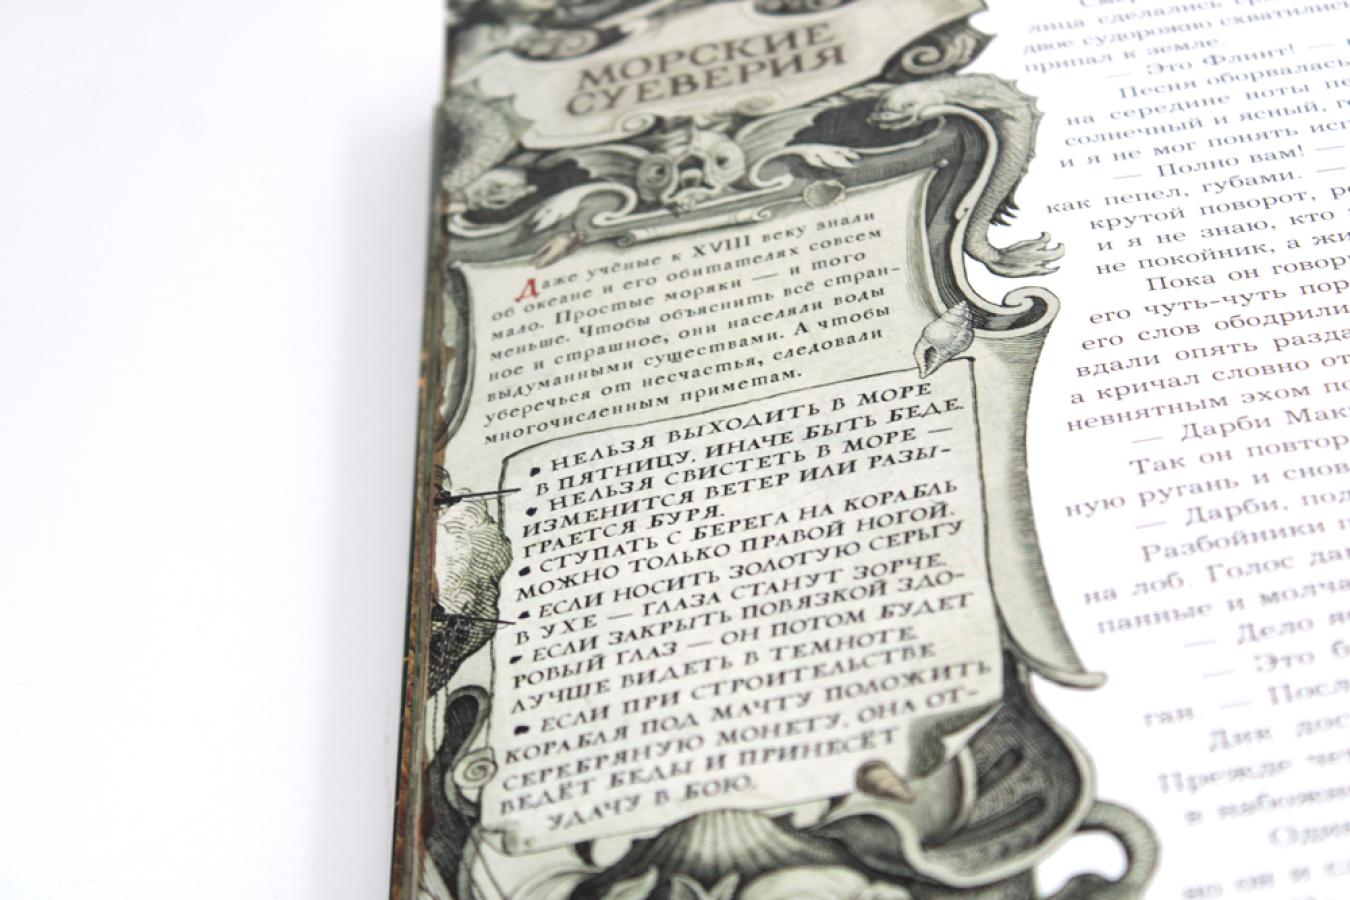 МОРСКИЕ
СУЕВЕРИЯ
Даже учёные к XVIII веку знали
об океане и его обитателях совсем
мало. Простые моряки — и того
меньше. Чтобы объяснить всё стран-
ное и страшное, они населяли воды
выдуманными существами. А чтобы
уберечься от несчастья, следовали
многочисленным приметам.
• НЕЛЬЗЯ ВЫХОДИТЬ В МОРЕ
В ПЯТНИЦУ, ИНАЧЕ БЫТЬ БЕДЕ.
• НЕЛЬЗЯ СВИСТЕТЬ В МОРЕ —
ИЗМЕНИТСЯ ВЕТЕР ИЛИ РАЗЫ-
ГРАЕТСЯ БУРЯ.
• СТУПАТЬ С БЕРЕГА НА КОРАБЛЬ
МОЖНО ТОЛЬКО ПРАВОЙ НОГОЙ.
• ЕСЛИ НОСИТЬ ЗОЛОТУЮ СЕРЬГУ
В УХЕ — ГЛАЗА СТАНУТ ЗОРЧЕ.
• ЕСЛИ ЗАКРЫТЬ ПОВЯЗКОЙ ЗДО-
РОВЫЙ ГЛАЗ — ОН ПОТОМ БУДЕТ
ЛУЧШЕ ВИДЕТЬ В ТЕМНОТЕ.
• ЕСЛИ ПРИ СТРОИТЕЛЬСТВЕ
КОРАБЛЯ ПОД МАЧТУ ПОЛОЖИТЬ
СЕРЕБРЯНУЮ МОНЕТУ, ОНА ОТ-
ВЕДЁТ БЕДЫ И ПРИНЕСЁТ
УДАЧУ В БОЮ.
лица сделались
двое судорожно схватились
припал к земле.
— Это Флинт! —
Песня оборвалась
на середине ноты
солнечный и ясный,
и я не мог понять
— Полно вам! —
как пепел, губами. —
крутой поворот,
и я не знаю, кто
не покойник, а
Пока он
его чуть-чуть
его слов
вдали опять
а кричал словно
невнятным эхом
— Дарби
Так он
ную ругань и
— Дарби,
Разбойники
на лоб. Голос
и
— Дело
— Это
ган. —
Дик
Прежде
в